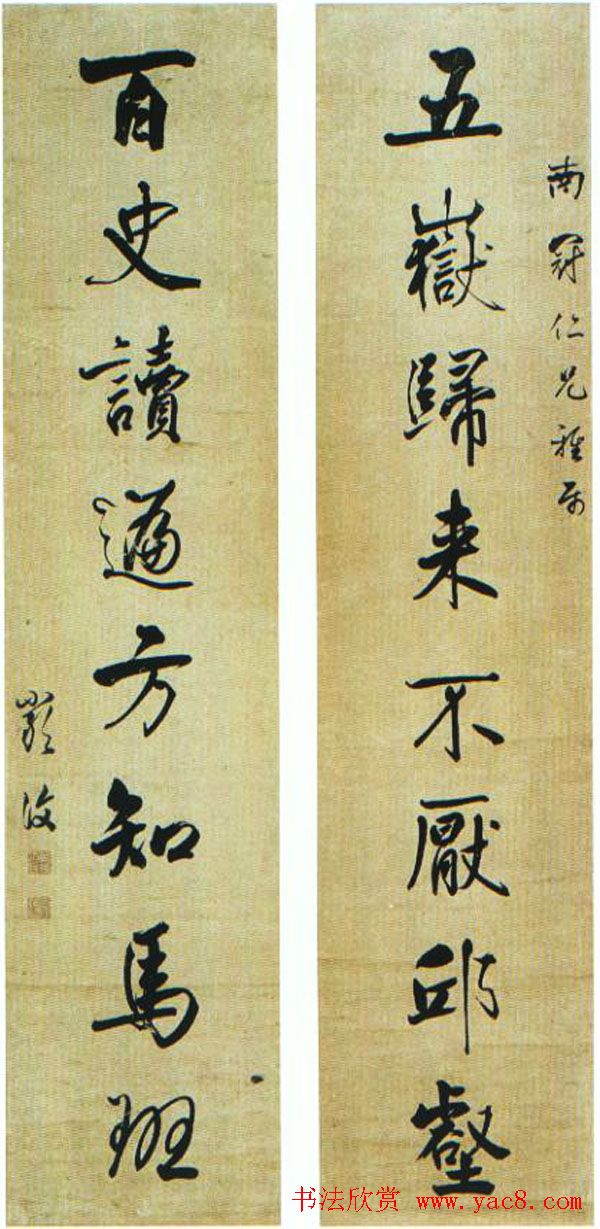 南冠仁兄雅属
五嶽歸来不厭邱壑
百史讀遍方知馬班
书法欣赏 www.yac8.com